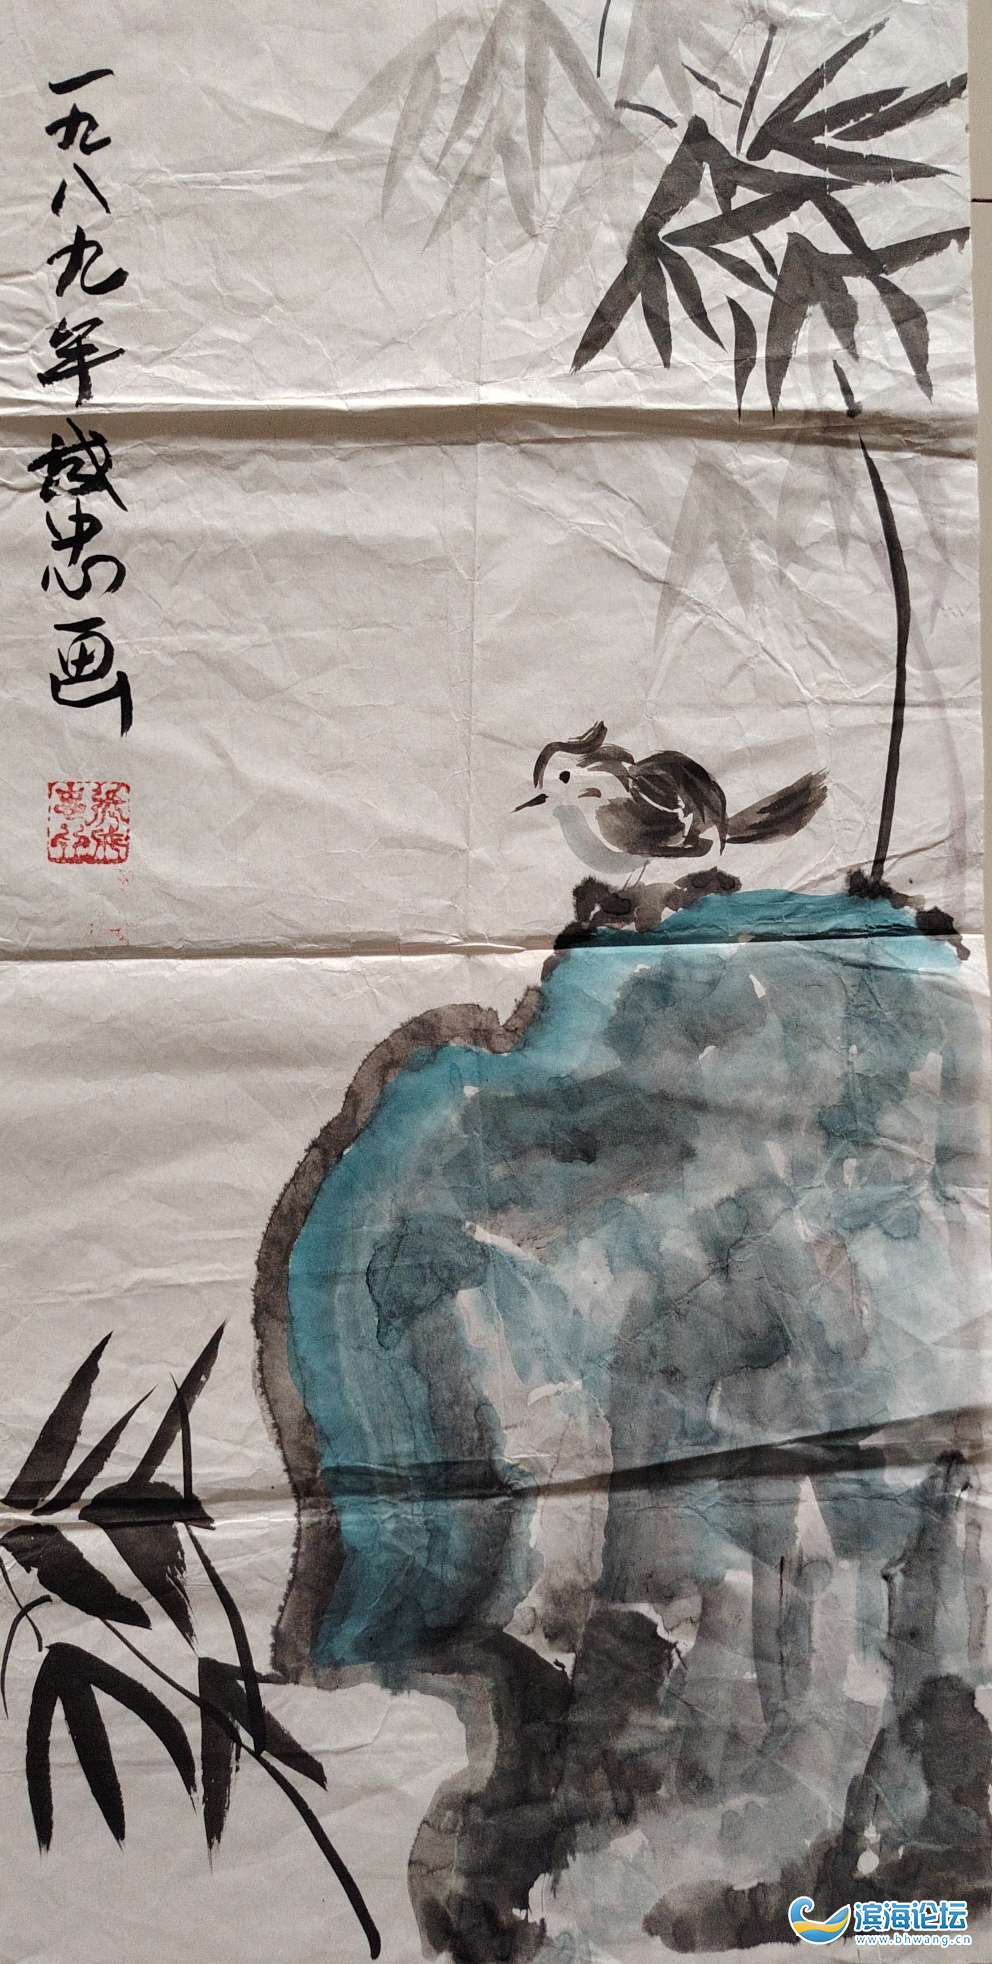 一九八九年诚忠画
滨海论坛
www.bhwang.cn